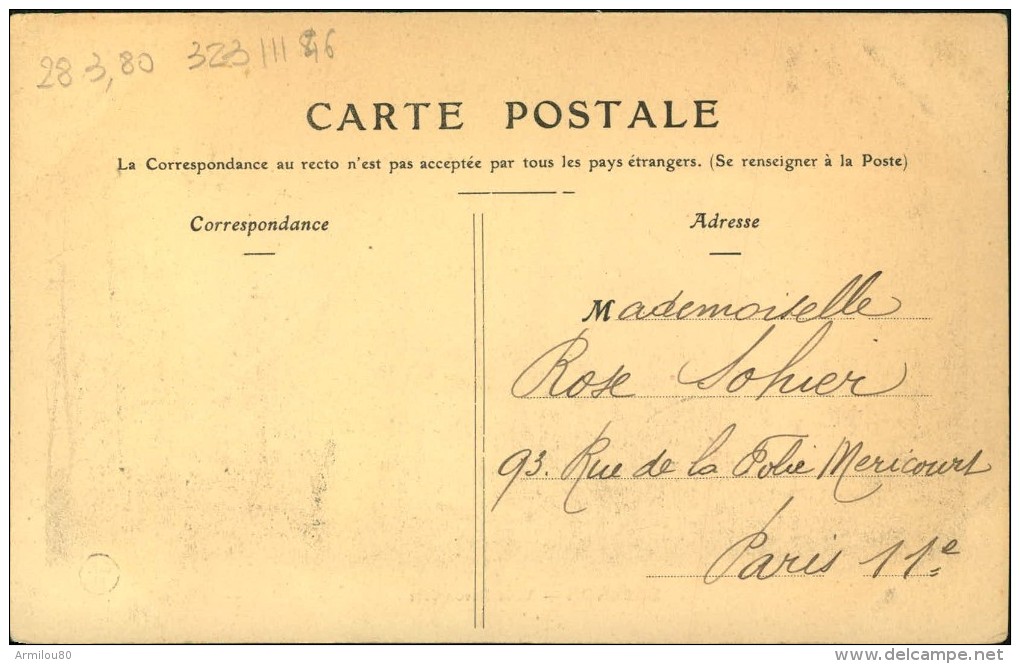 28 3,80 323 111
CARTE POSTALE
La Correspondance au recto n'est pas acceptée par tous les pays étrangers. (Se renseigner à la Poste)
Correspondance
Adresse
Mademoiselle
Rose Sohier
93. Rue de la Folie Mericourt
Paris 11e
Armilou80
www.delcampe.net